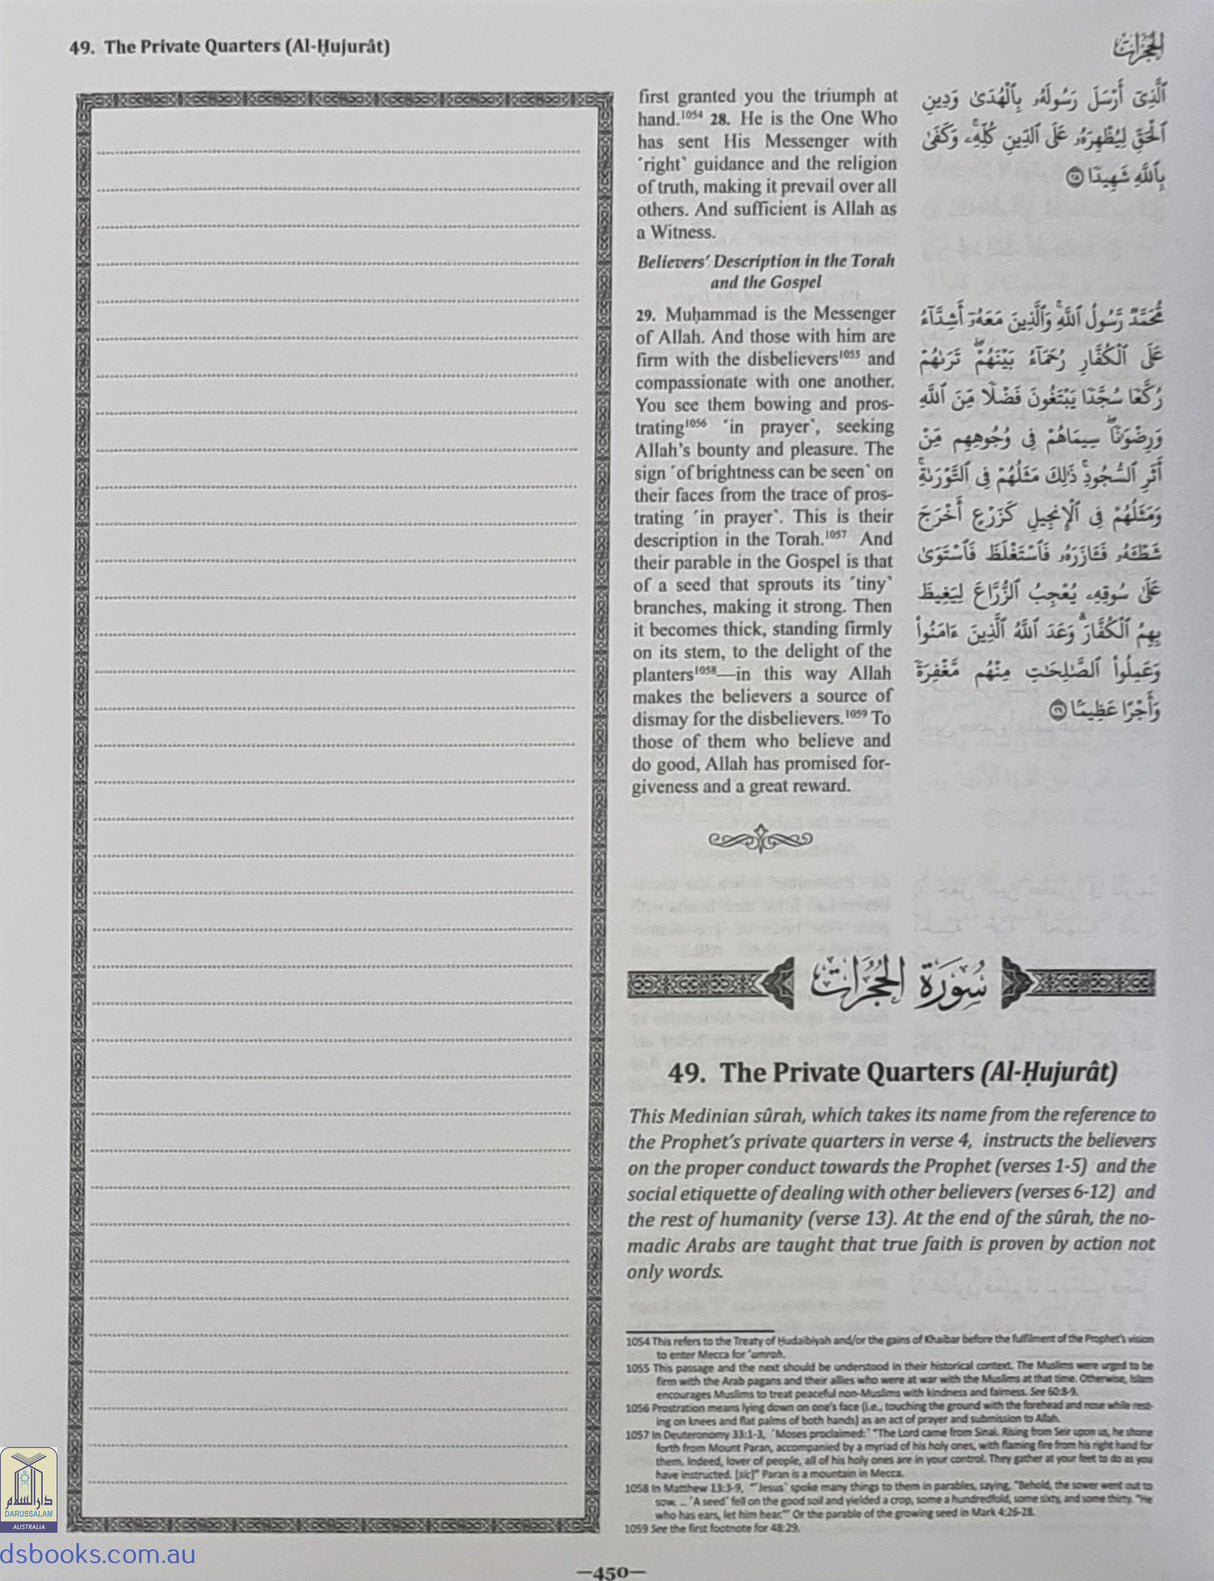 49. The Private Quarters (Al-Ḥujurât)
الحجرات
first granted you the triumph at
hand.¹⁰⁵⁴ 28. He is the One Who
has sent His Messenger with
˹right˺ guidance and the religion
of truth, making it prevail over all
others. And sufficient is Allah as
a Witness.
Believers' Description in the Torah
and the Gospel
29. Muḥammad is the Messenger
of Allah. And those with him are
firm with the disbelievers¹⁰⁵⁵ and
compassionate with one another.
You see them bowing and pros-
trating¹⁰⁵⁶ ˹in prayer˺, seeking
Allah's bounty and pleasure. The
sign ˹of brightness can be seen˺ on
their faces from the trace of pros-
trating ˹in prayer˺. This is their
description in the Torah.¹⁰⁵⁷ And
their parable in the Gospel is that
of a seed that sprouts its ˹tiny˺
branches, making it strong. Then
it becomes thick, standing firmly
on its stem, to the delight of the
planters¹⁰⁵⁸—in this way Allah
makes the believers a source of
dismay for the disbelievers.¹⁰⁵⁹ To
those of them who believe and
do good, Allah has promised for-
giveness and a great reward.
ٱلَّذِىٓ أَرْسَلَ رَسُولَهُۥ بِٱلْهُدَىٰ وَدِينِ
ٱلْحَقِّ لِيُظْهِرَهُۥ عَلَى ٱلدِّينِ كُلِّهِۦۚ وَكَفَىٰ
بِٱللَّهِ شَهِيدًا ٢٨
مُّحَمَّدٌ رَّسُولُ ٱللَّهِۚ وَٱلَّذِينَ مَعَهُۥٓ أَشِدَّآءُ
عَلَى ٱلْكُفَّارِ رُحَمَآءُ بَيْنَهُمْۖ تَرَىٰهُمْ
رُكَّعًا سُجَّدًا يَبْتَغُونَ فَضْلًا مِّنَ ٱللَّهِ
وَرِضْوَٰنًاۖ سِيمَاهُمْ فِى وُجُوهِهِم مِّنْ
أَثَرِ ٱلسُّجُودِۚ ذَٰلِكَ مَثَلُهُمْ فِى ٱلتَّوْرَىٰةِۚ
وَمَثَلُهُمْ فِى ٱلْإِنجِيلِ كَزَرْعٍ أَخْرَجَ
شَطْـَٔهُۥ فَـَٔازَرَهُۥ فَٱسْتَغْلَظَ فَٱسْتَوَىٰ
عَلَىٰ سُوقِهِۦ يُعْجِبُ ٱلزُّرَّاعَ لِيَغِيظَ
بِهِمُ ٱلْكُفَّارَۗ وَعَدَ ٱللَّهُ ٱلَّذِينَ ءَامَنُوا۟
وَعَمِلُوا۟ ٱلصَّٰلِحَٰتِ مِنْهُم مَّغْفِرَةً
وَأَجْرًا عَظِيمًۢا ٢٩
سُورَة الحُجُرَات
49. The Private Quarters (Al-Ḥujurât)
This Medinian sûrah, which takes its name from the reference to
the Prophet's private quarters in verse 4, instructs the believers
on the proper conduct towards the Prophet (verses 1-5) and the
social etiquette of dealing with other believers (verses 6-12) and
the rest of humanity (verse 13). At the end of the sûrah, the no-
madic Arabs are taught that true faith is proven by action not
only words.
1054 This refers to the Treaty of Ḥudaibiyah and/or the gains of Khaibar before the fulfilment of the Prophet's vision
to enter Mecca for 'umrah.
1055 This passage and the next should be understood in their historical context. The Muslims were urged to be
firm with the Arab pagans and their allies who were at war with the Muslims at that time. Otherwise, Islam
encourages Muslims to treat peaceful non-Muslims with kindness and fairness. See 60:8-9.
1056 Prostration means lying down on one's face (i.e., touching the ground with the forehead and nose while rest-
ing on knees and flat palms of both hands) as an act of prayer and submission to Allah.
1057 In Deuteronomy 33:1-3, ˹Moses proclaimed:˺ "The Lord came from Sinai. Rising from Seir upon us, he shone
forth from Mount Paran, accompanied by a myriad of his holy ones, with flaming fire from his right hand for
them. Indeed, lover of people, all of his holy ones are in your control. They gather at your feet to do as you
have instructed. [sic]" Paran is a mountain in Mecca.
1058 In Matthew 13:3-9, "˹Jesus˺ spoke many things to them in parables, saying, "Behold, the sower went out to
sow. ... ˹A seed˺ fell on the good soil and yielded a crop, some a hundredfold, some sixty, and some thirty. "He
who has ears, let him hear."" Or the parable of the growing seed in Mark 4:26-28.
1059 See the first footnote for 48:29.
—450—
دارالسلام
DARUSSALAM
AUSTRALIA
dsbooks.com.au